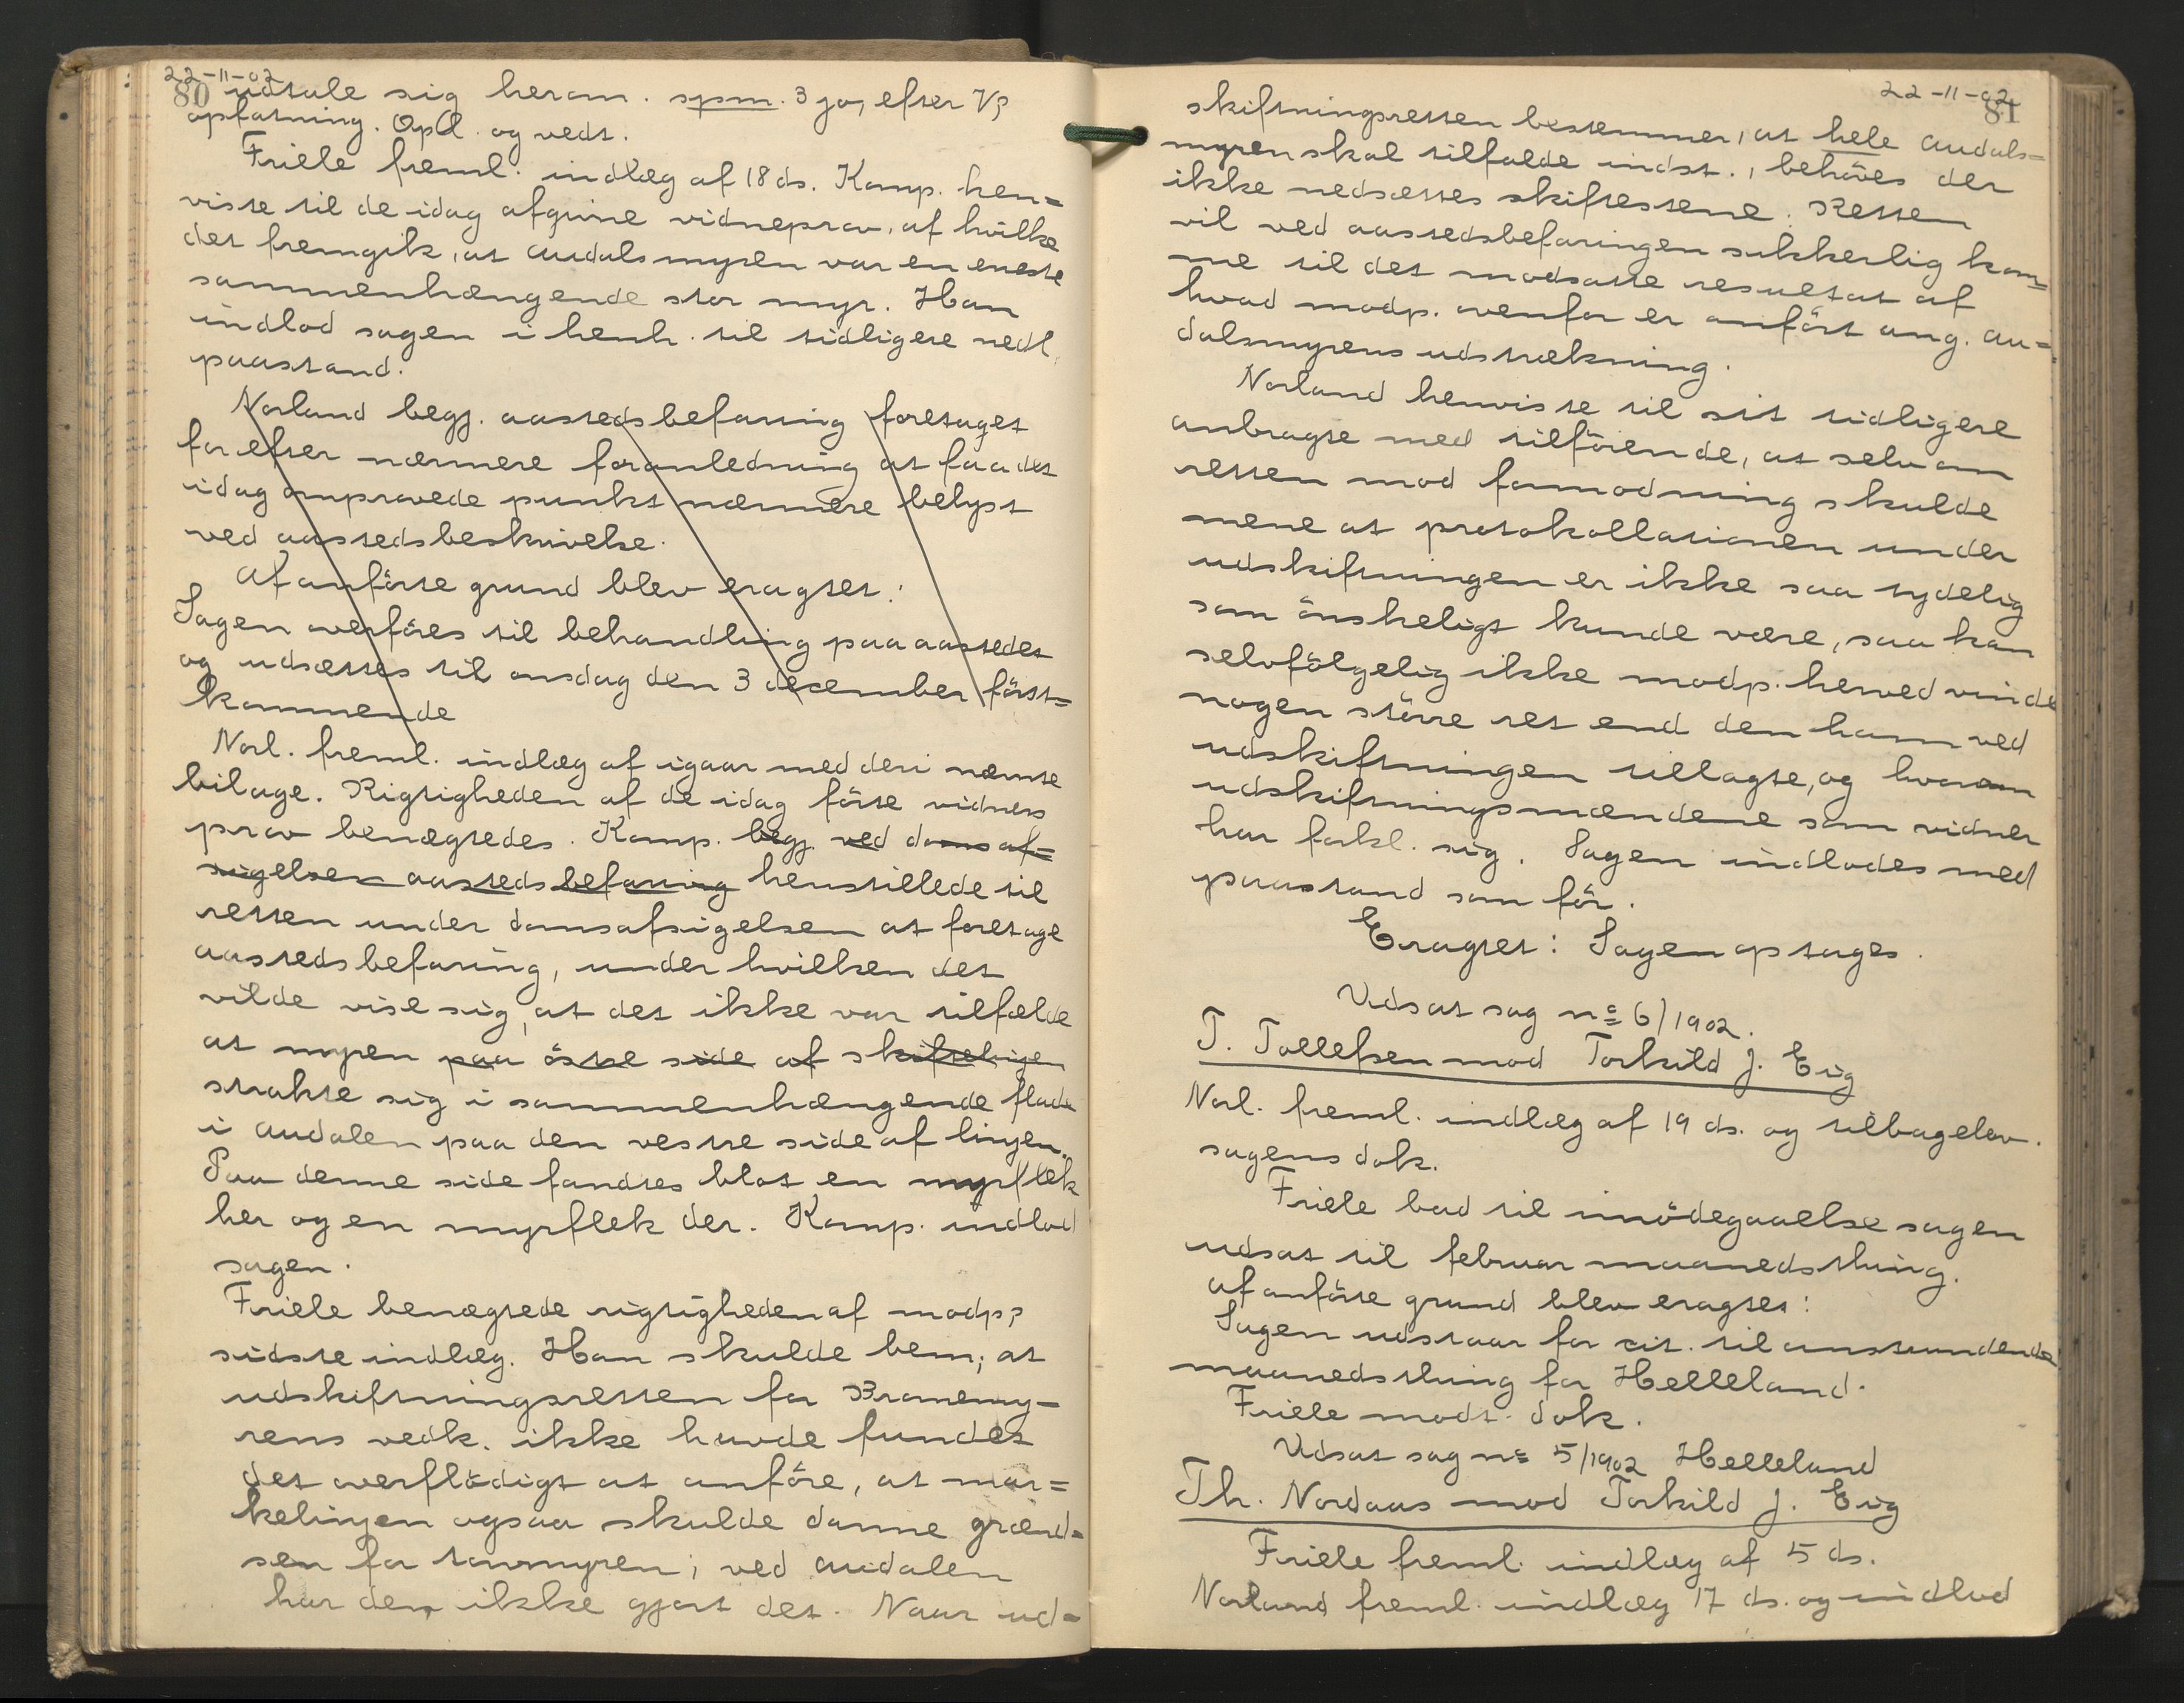 22-11-02
80 udtale sig herom. spm. 3 ja, efter V's
opfatning. Opl. og vedt.
Friele freml. indlæg af 18 ds. Komp. hen=
viste til de idag afgivne vidneprov, af hvilke
det fremgik, at Audalsmyren var en eneste
sammenhængende stor myr. Han
indlod sagen i henh. til tidligere nedl.
paastand.
Norland begj. aastedsbefaring foretaget
for efter nærmere foranledning at faa det
idag omprovede punkt nærmere belyst
ved aastedsbeskrivelse.
Af anförte grund blev eragtet:
Sagen overföres til behandling paa aastedet
og udsættes til onsdag den 3 december först=
kommende
Norl. freml. indlæg af igaar med deri nævnte
bilage. Rigtigheden af de idag förte vidners
prov benægtedes. Komp. begj. ved domsaf=
sigelsen aastedsbefaring henstillede til
retten under domsafsigelsen at foretage
aastedsbefaring, under hvilken det
vilde vise sig, at det ikke var tilfælde
at myren paa östre side af skiftelinjen
strakte sig i sammenhængende flade
i Audalen paa den vestre side af linjen.
Paa denne side fandtes blot en myrflek
her og en myrflek der. Komp. indlod
sagen.
Friele benægtede rigtigheden af modp.s
sidste indlæg. Han skulde bem., at
udskiftningsretten for Bramemy-
rens vedk. ikke havde fundet
det overflödigt at anföre, at mar=
kelinjen ogsaa skulde danne grænd=
sen for torvmyren; ved Audalen
har den ikke gjort det. Naar ud=
22-11-02
81
skiftningsretten bestemmer, at hele Audals=
myren skal tilfalde indst., behöves der
ikke nedsættes skiftestene. Retten
vil ved aastedsbefaringen sikkerlig kom=
me til det modsatte resultat af
hvad modp. ovenfor er anfört ang. Au=
dalsmyrens udstrækning.
Norland henviste til sit tidligere
anbragte med tilföiende, at selv om
retten mod formodning skulde
mene at protokollationen under
udskiftningen er ikke saa tydelig
som önskeligt kunde være, saa kan
selvfölgelig ikke modp. herved vinde
nogen större ret end den ham ved
udskiftningen tillagte, og hvorom
udskiftningsmændene som vidner
har forkl. sig. Sagen indlodes med
paastand som för.
Eragtet: Sagen optages.
Udsat sag no 6/1902.
T. Tollefsen mod Torkild J. Eig
Norl. freml. indlæg af 19 ds. og tilbagelev.
sagens dok.
Friele bad til imödegaaelse sagen
udsat til februar maanedsthing.
af anförte grund blev eragtet:
Sagen udstaar for cit. til anstundende
maanedsthing for Helleland.
Friele modt. dok.
Udsat sag no 5/1902 Helleland
Th. Nordaas mod Torkild J. Eig
Friele freml. indlæg af 5 ds.
Norland freml. indlæg 17 ds. og indlod